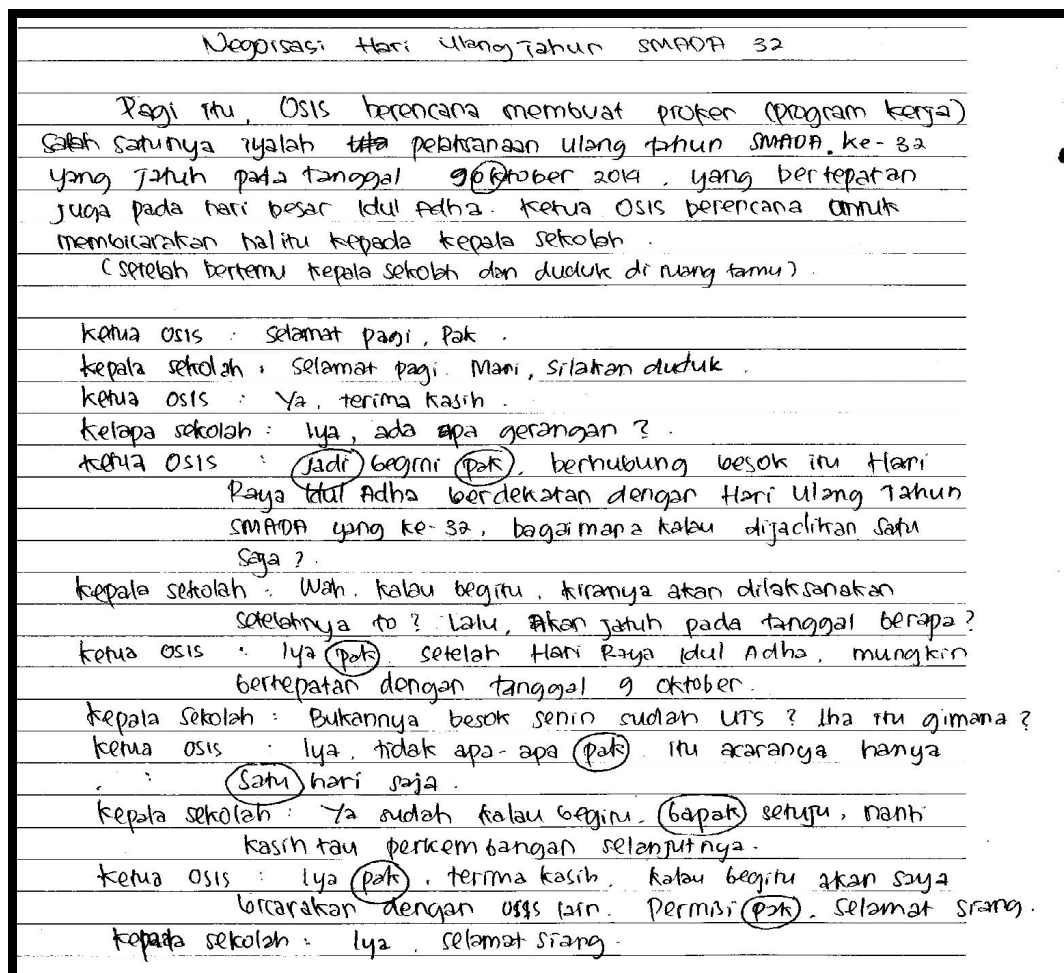 Negoisasi Hari Ulang Tahun SMADA 32
Pagi itu, OSIS berencana membuat proker (program kerja)
salah satunya iyalah pelaksanaan ulang tahun SMADA. ke-32
yang jatuh pada tanggal 9 oktober 2014, yang bertepatan
juga pada hari besar Idul Adha. Ketua OSIS berencana untuk
membicarakan hal itu kepada kepala sekolah.
(setelah bertemu kepala sekolah dan duduk di ruang tamu).
Ketua OSIS : Selamat pagi, Pak.
kepala sekolah : Selamat pagi. Mari, silakan duduk.
Ketua OSIS : Ya, terima kasih.
Kelapa sekolah : Iya, ada apa gerangan?.
Ketua OSIS : Jadi begini pak, berhubung besok itu Hari
Raya Idul Adha berdekatan dengan Hari Ulang Tahun
SMADA yang ke-32, bagaimana kalau dijadikan satu
saja?.
kepala sekolah : Wah. kalau begitu, kiranya akan dilaksanakan
setelahnya to? Lalu, Akan jatuh pada tanggal berapa?
Ketua OSIS : Iya pak setelah Hari Raya Idul Adha, mungkin
bertepatan dengan tanggal 9 Oktober.
kepala Sekolah : Bukannya besok senin sudah UTS? lha itu gimana?
Ketua OSIS : Iya, tidak apa-apa pak. itu acaranya hanya
: satu hari saja.
kepala sekolah : Ya sudah kalau begitu. bapak setuju, nanti
kasih tau perkembangan selanjutnya.
Ketua OSIS : Iya pak, terima kasih. Kalau begitu akan saya
bicarakan dengan osis lain. Permisi pak. Selamat siang.
kepada sekolah : Iya, selamat siang.